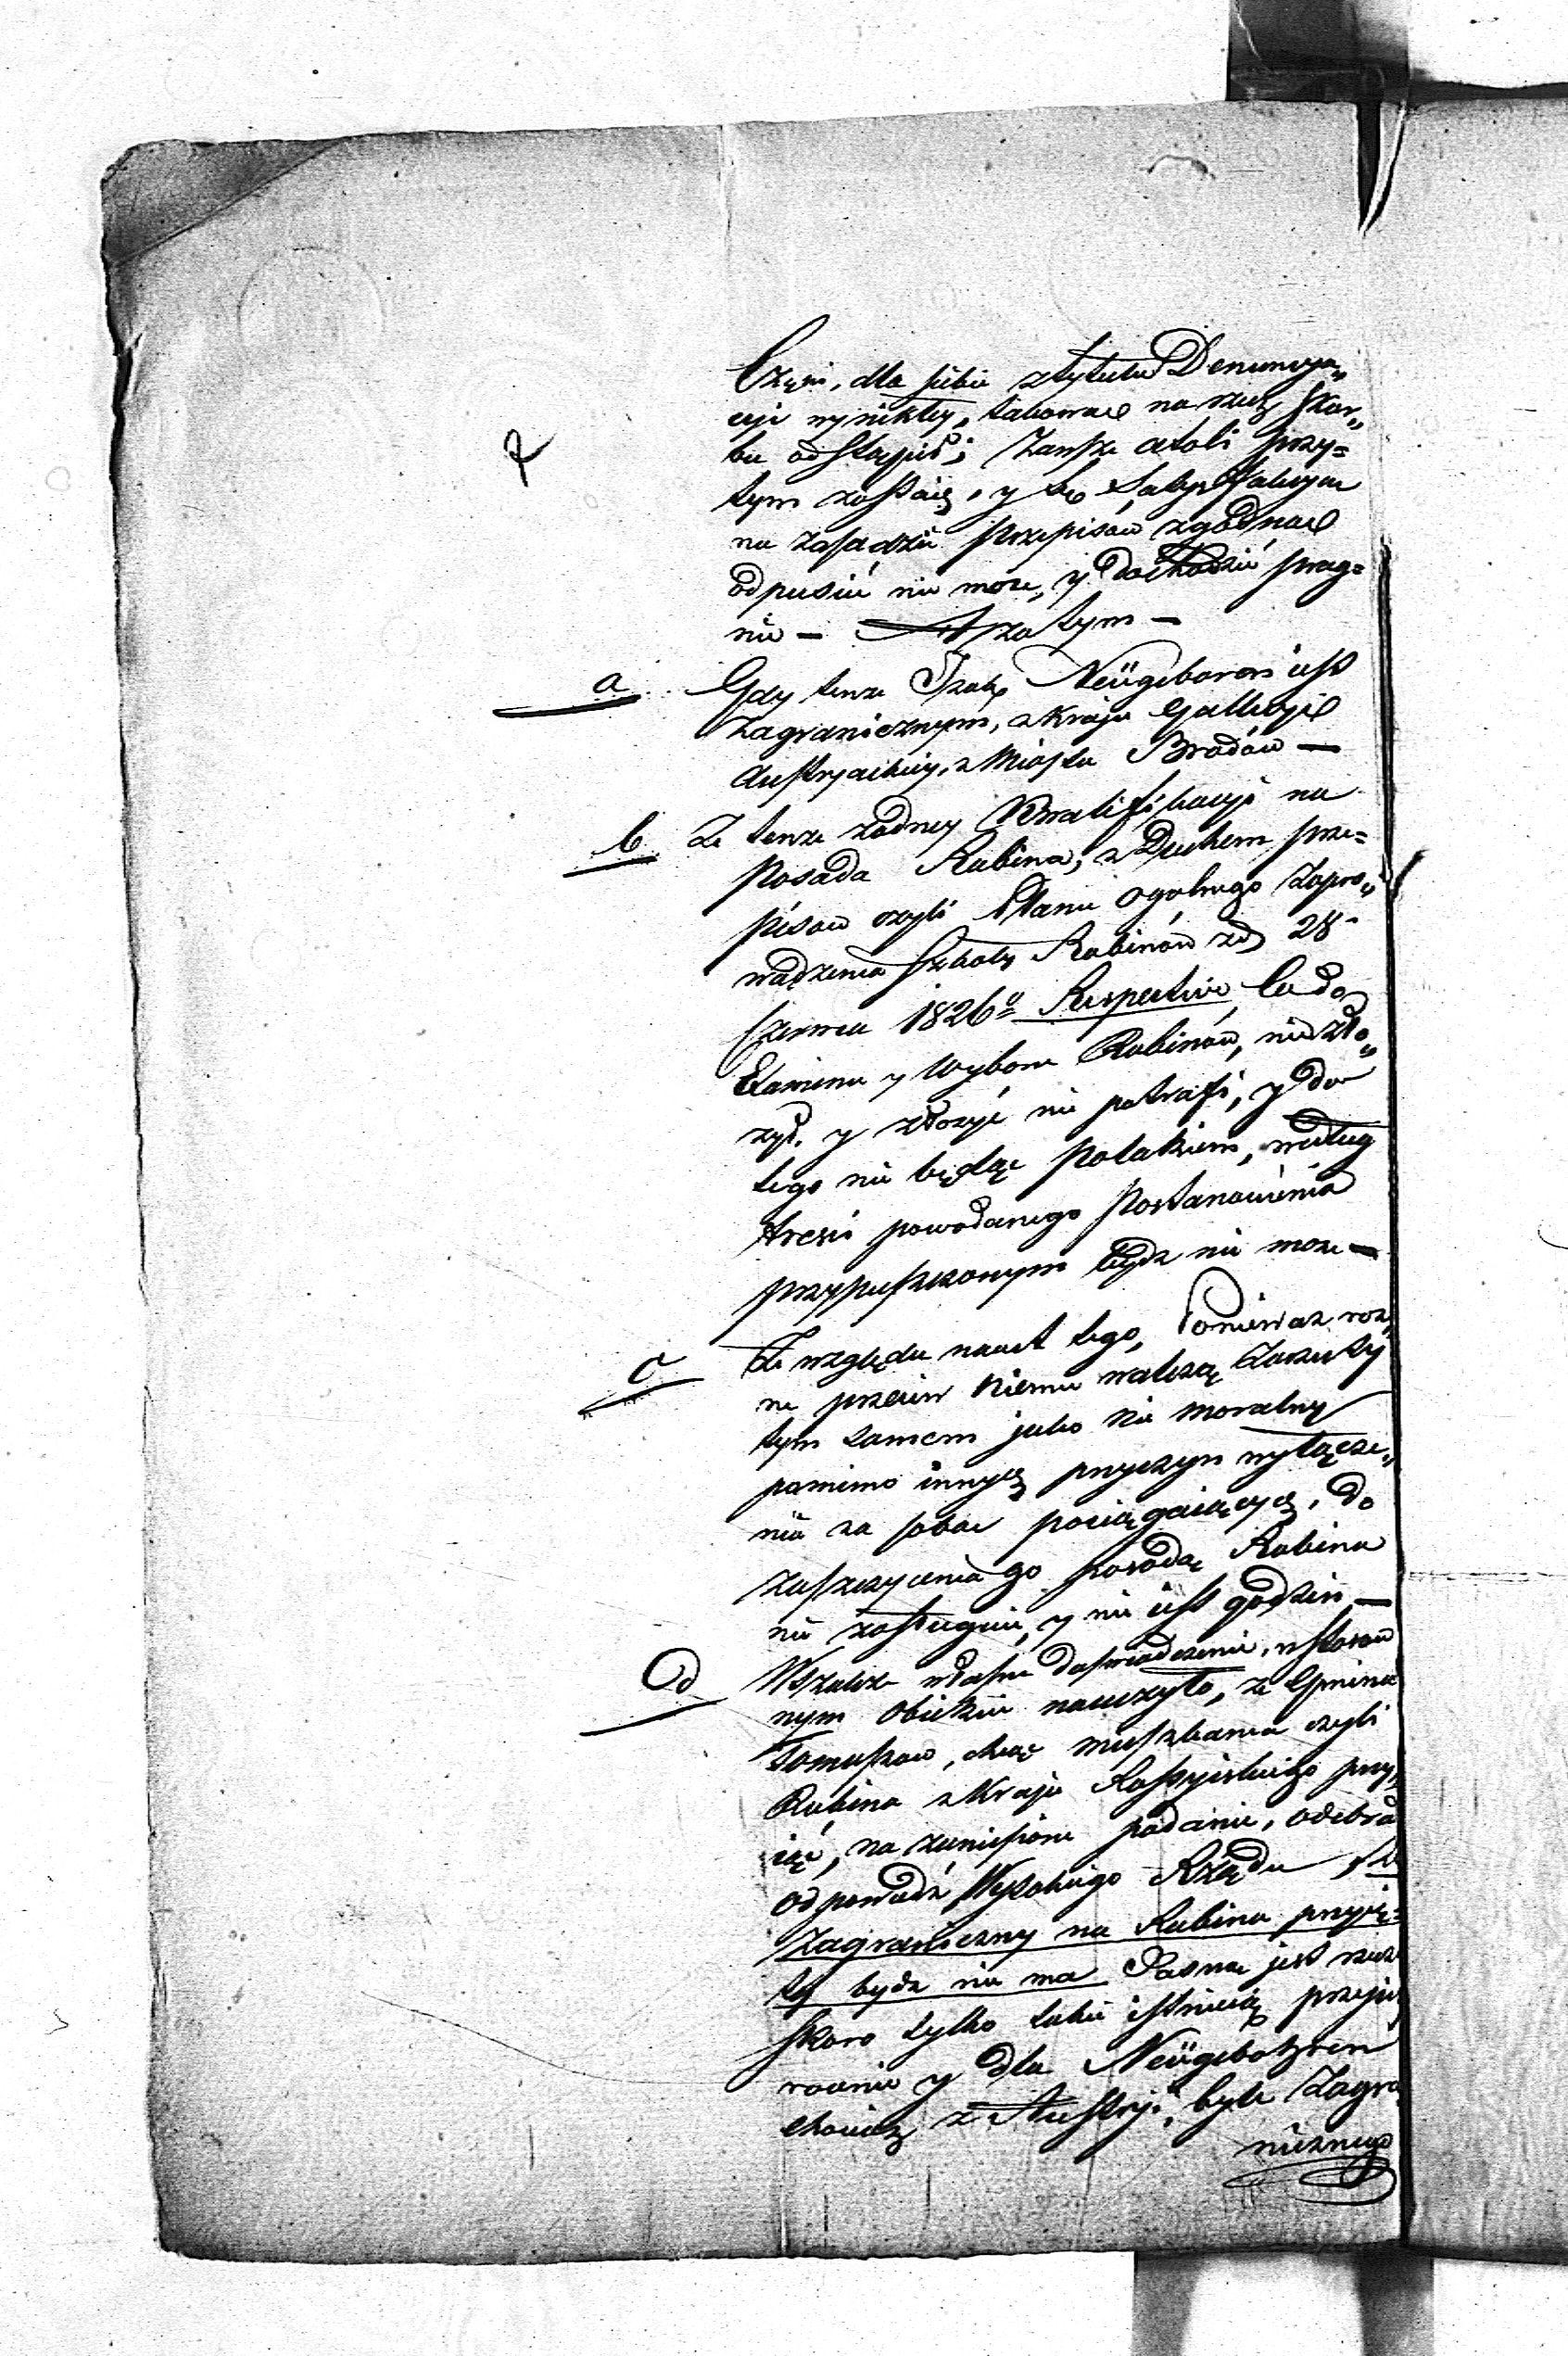 Częśći, dla siebie z tytułu Denuncya„
cyi wynikłey, takowa na rzecz Skar„
bu odstąpił; Zawsze atoli przy=
tym zostaię, y tę Satysfakcyą
na zasadzie przepisów zgodną
odpuścić nie może, y dochodzić prag=
nie — A zatym —
a Gdy tenże Izak Neügeboren iest
Zagranicznym, z Kraju Gallicyi
Austryackiey, z Miasta Brodów —
b Że tenże żadney Kwalifikacyi na
Posadę Rabina, z Duchem prze=
pisów czyli Planu ogolnego Zapro„
wadzenia Szkoły Rabinów z d 28
Czerwca 1826 Respective Co do
Examinu y Wyboru Rabinów, nie zło„
żył, y złożyć nie potrafi, y do
tego nie będąc Polakiem, według
treści powołanego Postanowienia
przypuszczonym bydz nie może —
c Ze względu nawet tego, Ponieważ roż„
ne przeciw Niemu walczą Zarzuty
tym samem jako nie moralny
pomimo innych przyczyn wyłącze„
nie za sobą pociągaiących, do
zaszczycenia go posadą Rabina
nie zasługuie, y nie iest godzien, —
d Wszakże własne doświadczenie, w
nym Obiekcie nauczyło, że Gmina
Tomaszow, chcąc
Rabina z Kraju Rossyiskiego przy„
iąć, na zaniesione podanie, odebrała
odpowiedź Wysokiego Rządu, że
Zagraniczny na Rabina przyię=
ty bydz nie ma Jasna jest rzecz
skoro tylko takie istnieią przepisy
rownie y dla Neügeboren
chociaż z Austryi, byle Zagra„
nicznego